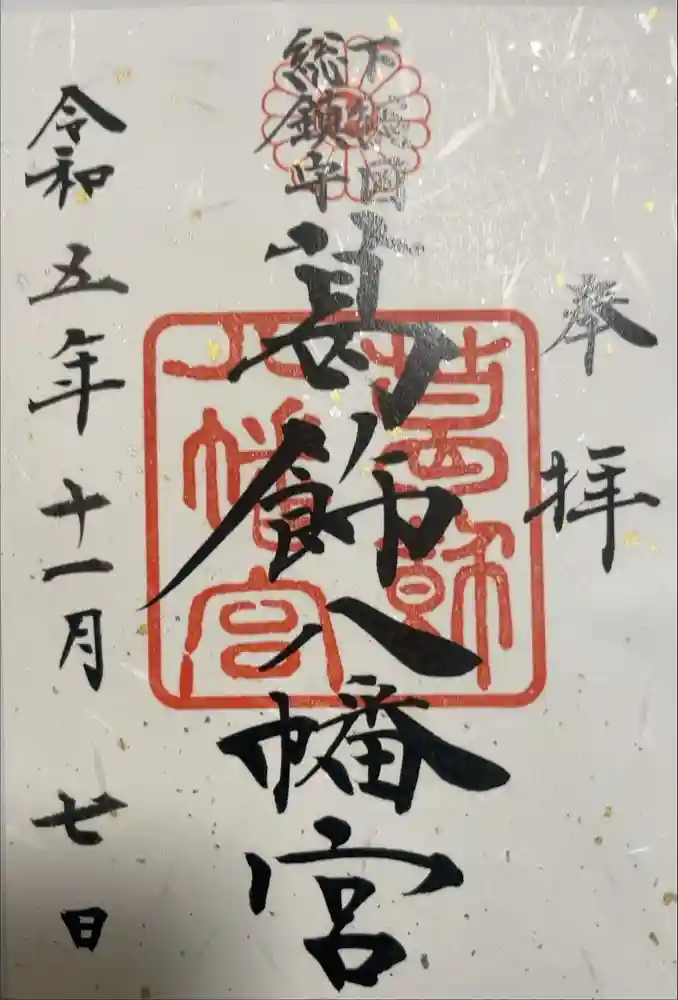 奉拝
下總国
総鎮守
葛飾八幡宮
葛飾
八幡宮
令和五年十一月七日